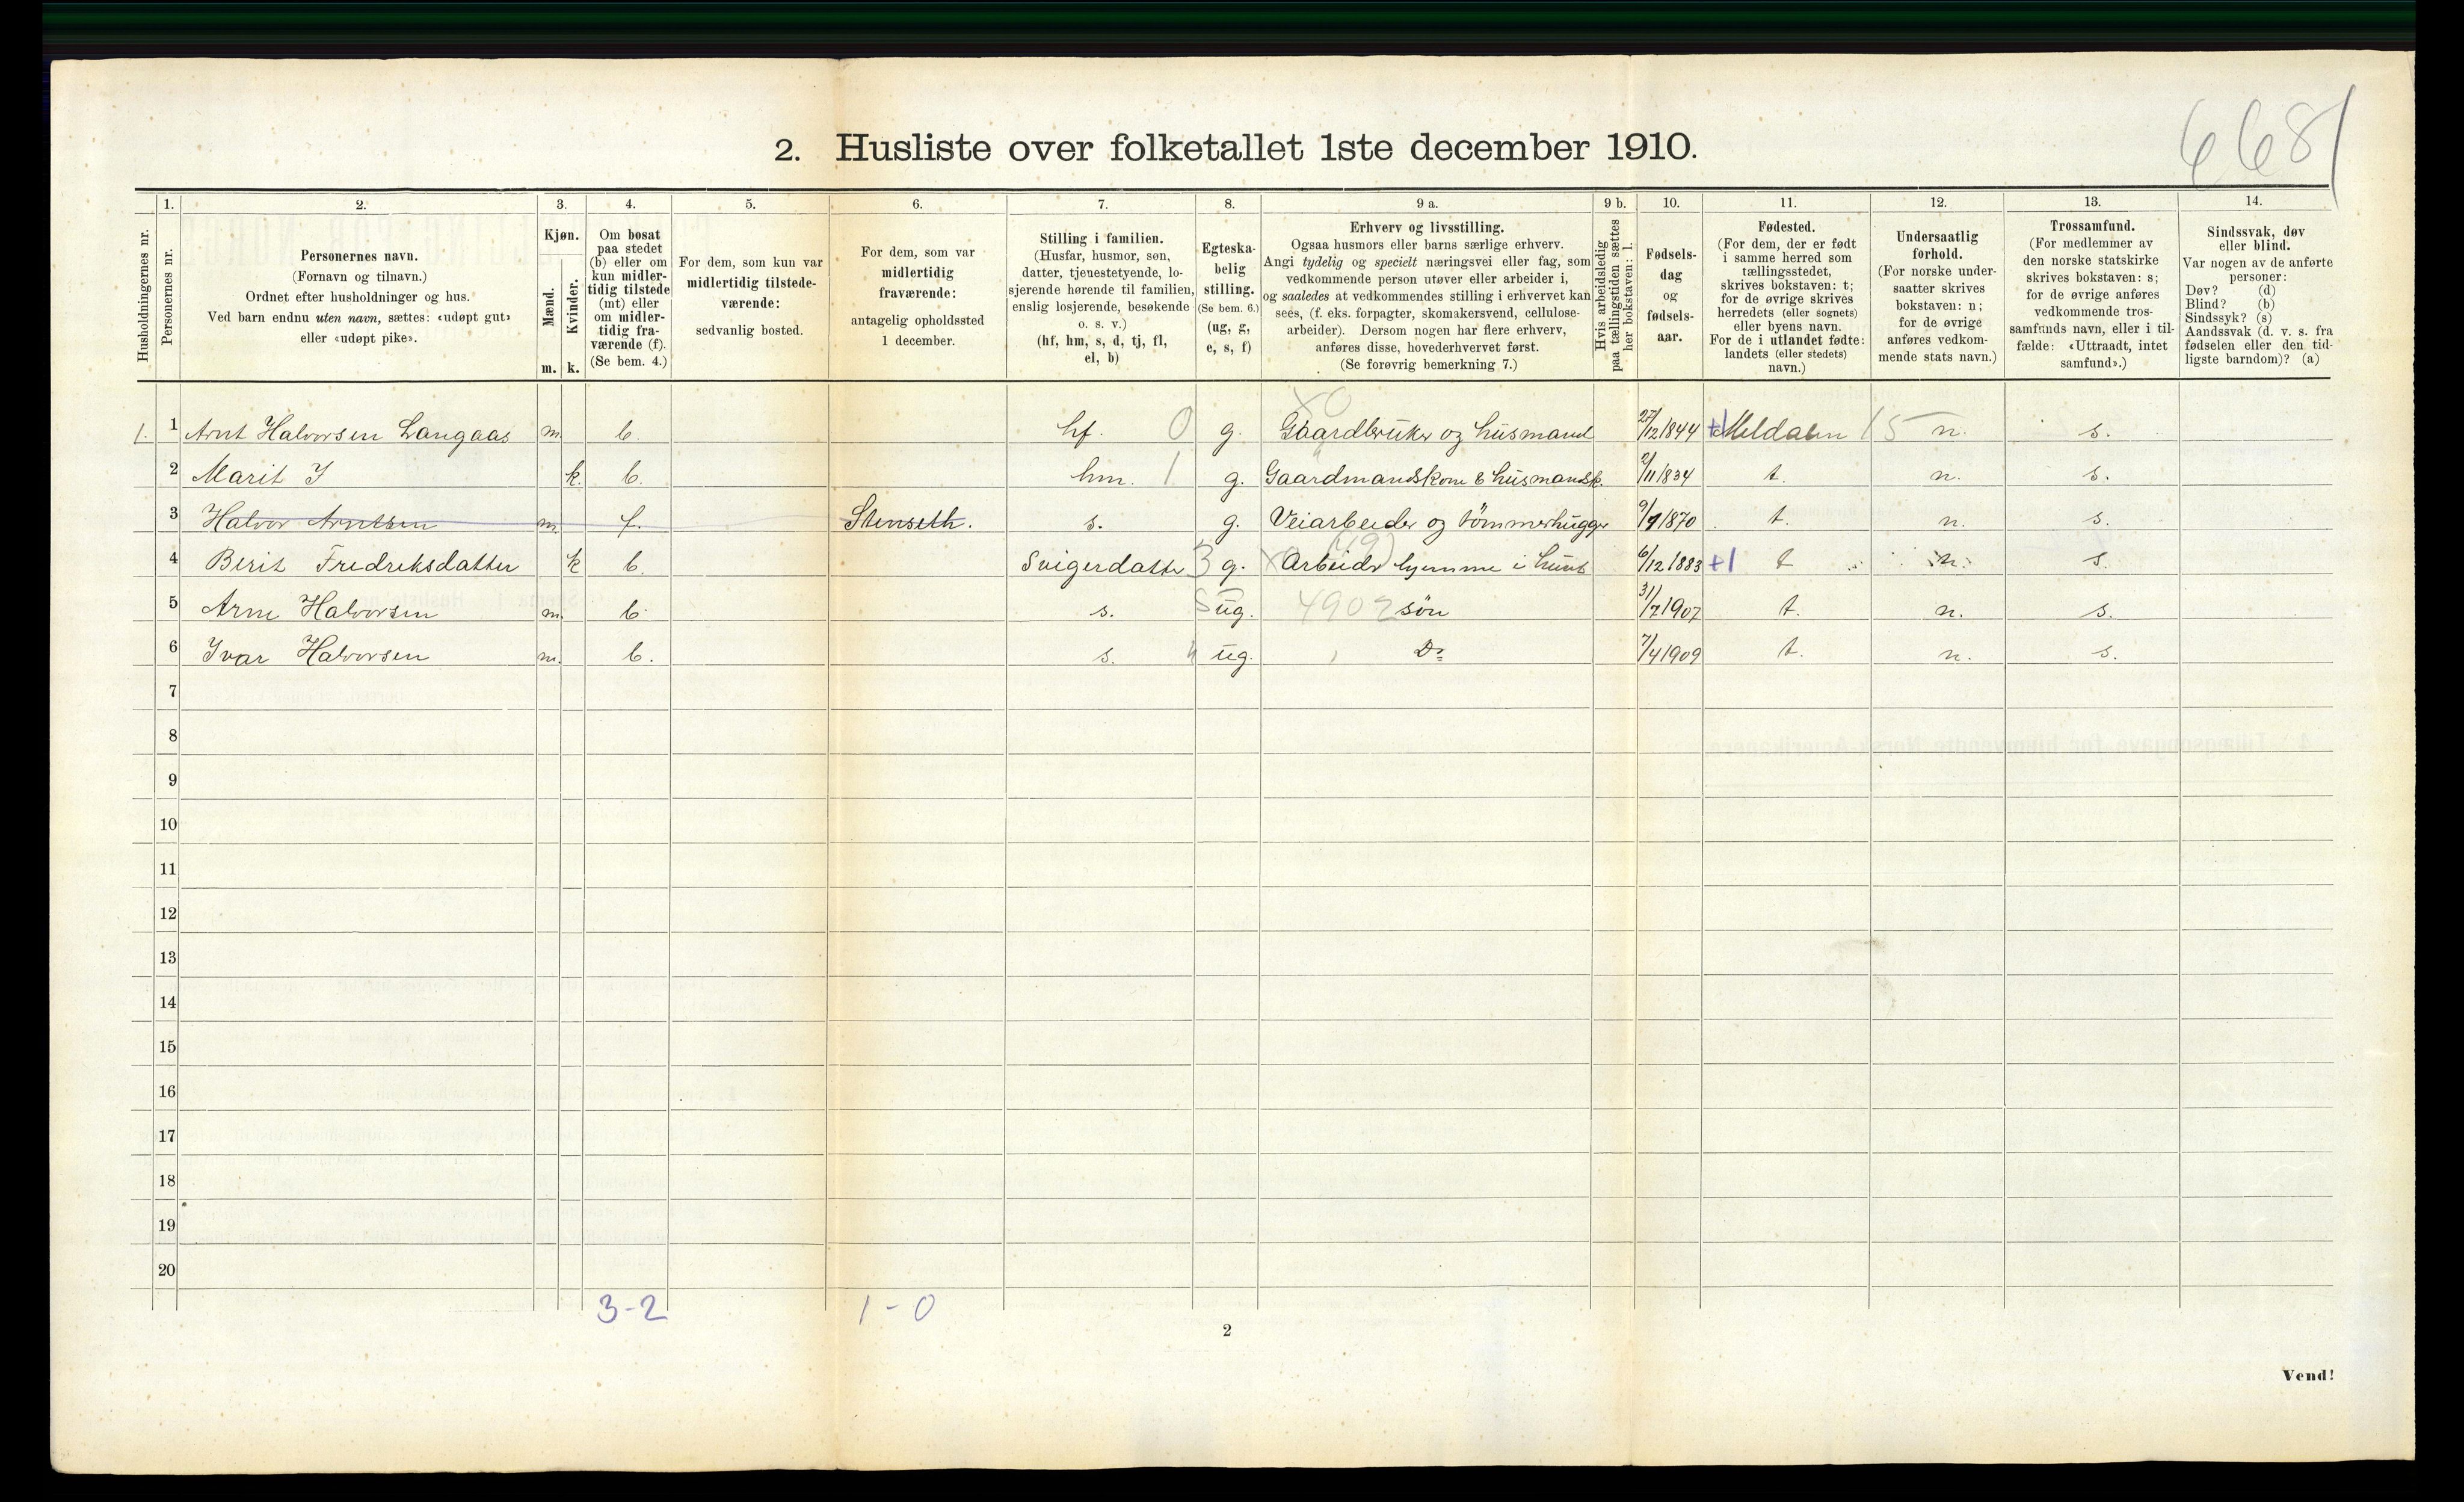 6681
2. Husliste over folketallet 1ste december 1910.
1. 2. 3. 4. 5. 6. 7. 8. 9 a. 9 b. 10. 11. 12. 13. 14.
Husholdningernes nr.
Personernes nr.
Personernes navn.
(Fornavn og tilnavn.)
Ordnet efter husholdninger og hus.
Ved barn endnu uten navn, sættes: «udøpt gut»
eller «udøpt pike».
Kjøn.
Mænd.
Kvinder.
m. k.
Om bosat
paa stedet
(b) eller om
kun midler-
tidig tilstede
(mt) eller
om midler-
tidig fra-
værende (f).
(Se bem. 4.)
For dem, som kun var
midlertidig tilstede-
værende:
sedvanlig bosted.
For dem, som var
midlertidig
fraværende:
antagelig opholdssted
1 december.
Stilling i familien.
(Husfar, husmor, søn,
datter, tjenestetyende, lo-
sjerende hørende til familien,
enslig losjerende, besøkende
o. s. v.)
(hf, hm, s, d, tj, fl,
el, b)
Egteska-
belig
stilling.
(Se bem. 6.)
(ug, g,
e, s, f)
Erhverv og livsstilling.
Ogsaa husmors eller barns særlige erhverv.
Angi tydelig og specielt næringsvei eller fag, som
vedkommende person utøver eller arbeider i,
og saaledes at vedkommendes stilling i erhvervet kan
sees, (f. eks. forpagter, skomakersvend, cellulose-
arbeider). Dersom nogen har flere erhverv,
anføres disse, hovederhvervet først.
(Se forøvrig bemerkning 7.)
Hvis arbeidsledig
paa tællingstiden sættes
her bokstaven: l.
Fødsels-
dag
og
fødsels-
aar.
Fødested.
(For dem, der er født
i samme herred som
tællingsstedet,
skrives bokstaven: t;
for de øvrige skrives
herredets (eller sognets)
eller byens navn.
For de i utlandet fødte:
landets (eller stedets)
navn.)
Undersaatlig
forhold.
(For norske under-
saatter skrives
bokstaven: n;
for de øvrige
anføres vedkom-
mende stats navn.)
Trossamfund.
(For medlemmer av
den norske statskirke
skrives bokstaven: s;
for de øvrige anføres
vedkommende tros-
samfunds navn, eller i til-
fælde: «Uttraadt, intet
samfund».)
Sindssvak, døv
eller blind.
Var nogen av de anførte
personer:
Døv? (d)
Blind? (b)
Sindssyk? (s)
Aandssvak (d. v. s. fra
fødselen eller den tid-
ligste barndom)? (a)
1. 1 Arnt Halvorsen Langaas m. b. hf. 0 g. Gaardbruker og husmand 27/12 1844 +1 Meldalen 15 n. s.
2 Marit J k. b. hm. 1 g. Gaardmandskone & husmandsk. 2/11 1834 t. n. s.
3 Halvor Arntsen m. f. Stenseth. s. g. Veiarbeider og tømmerhugger 9/1 1870 t. n. s.
4 Berit Fredriksdatter k b. Svigerdatter 3 g. Arbeider hjemme i huset 6/12 1883 +1 t n. s.
5 Arne Halvorsen m. b. s. ug. 4902 søn 31/7 1907 t. n. s.
6 Ivar Halvorsen m. b. s. ug. Do 7/4 1909 t. n. s.
7
8
9
10
11
12
13
14
15
16
17
18
19
20
3-2 1-0
2
Vend!